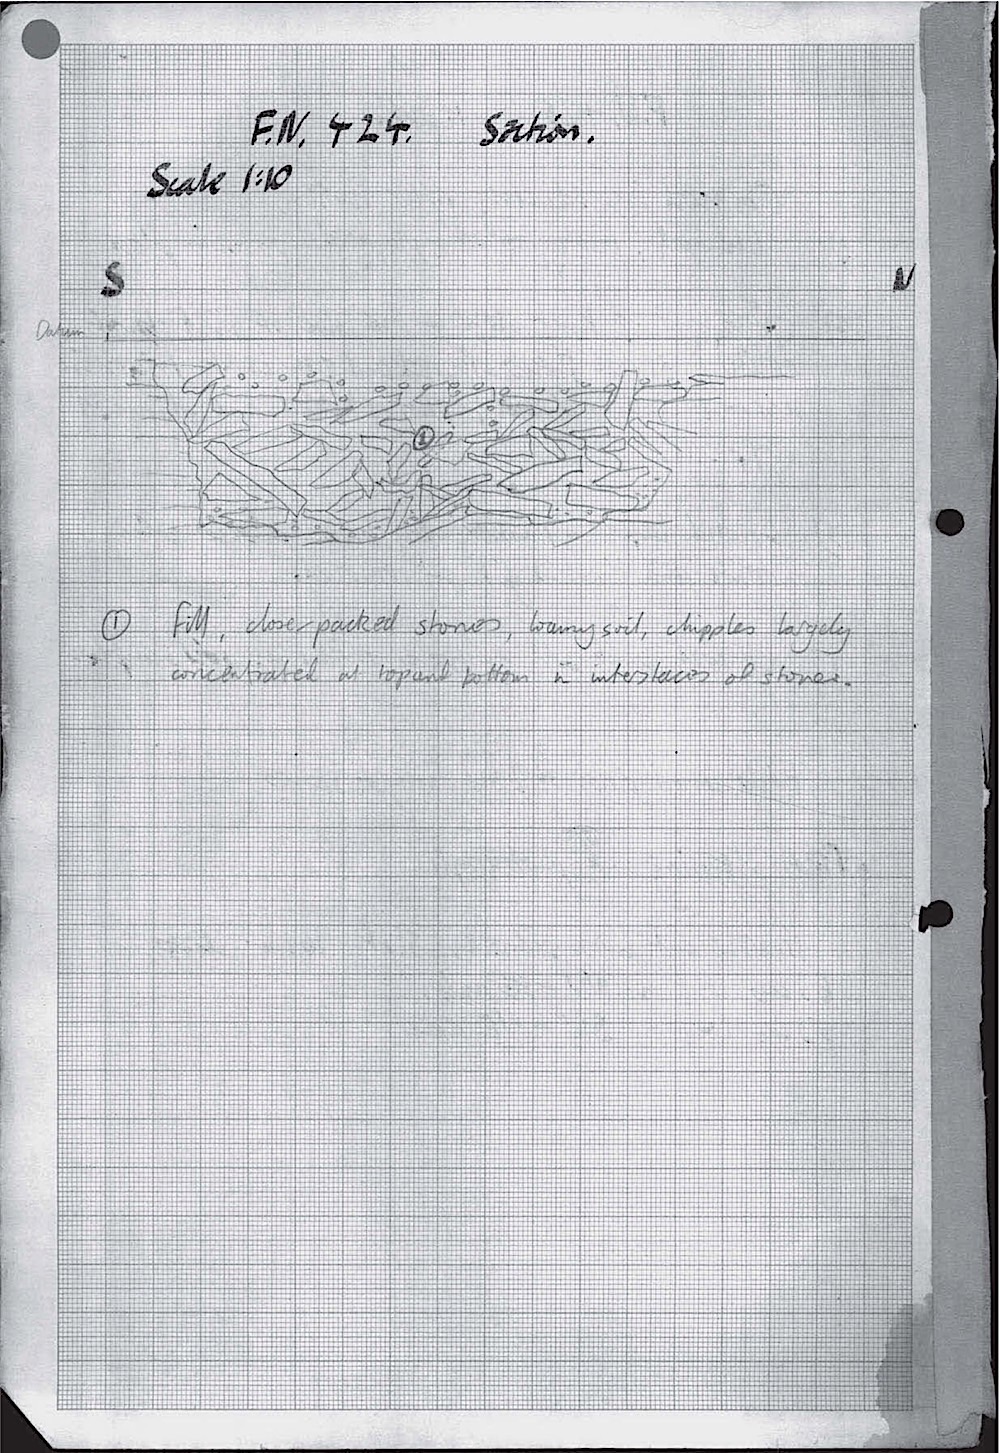 F.N. 424. Section.
Scale 1:10
S N
Datum
①
① Fill, close-packed stones, loamy soil, chipples largely
concentrated at top and bottom in interstaces of stones.